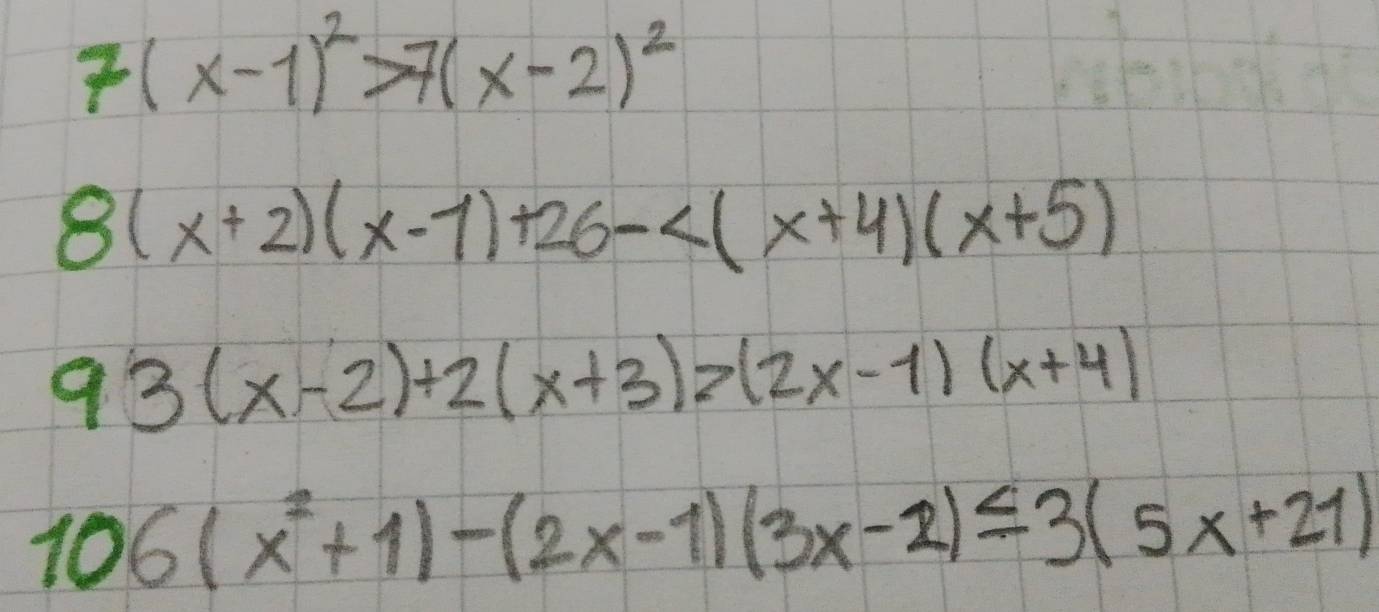 7(x-1)²>7(x-2)²
8(x+2)(x-1)+26-<(x+4)(x+5)
93(x-2)+2(x+3)>(2x-1)(x+4)
106(x²+1)-(2x-1)(3x-2)≤3(5x+21)